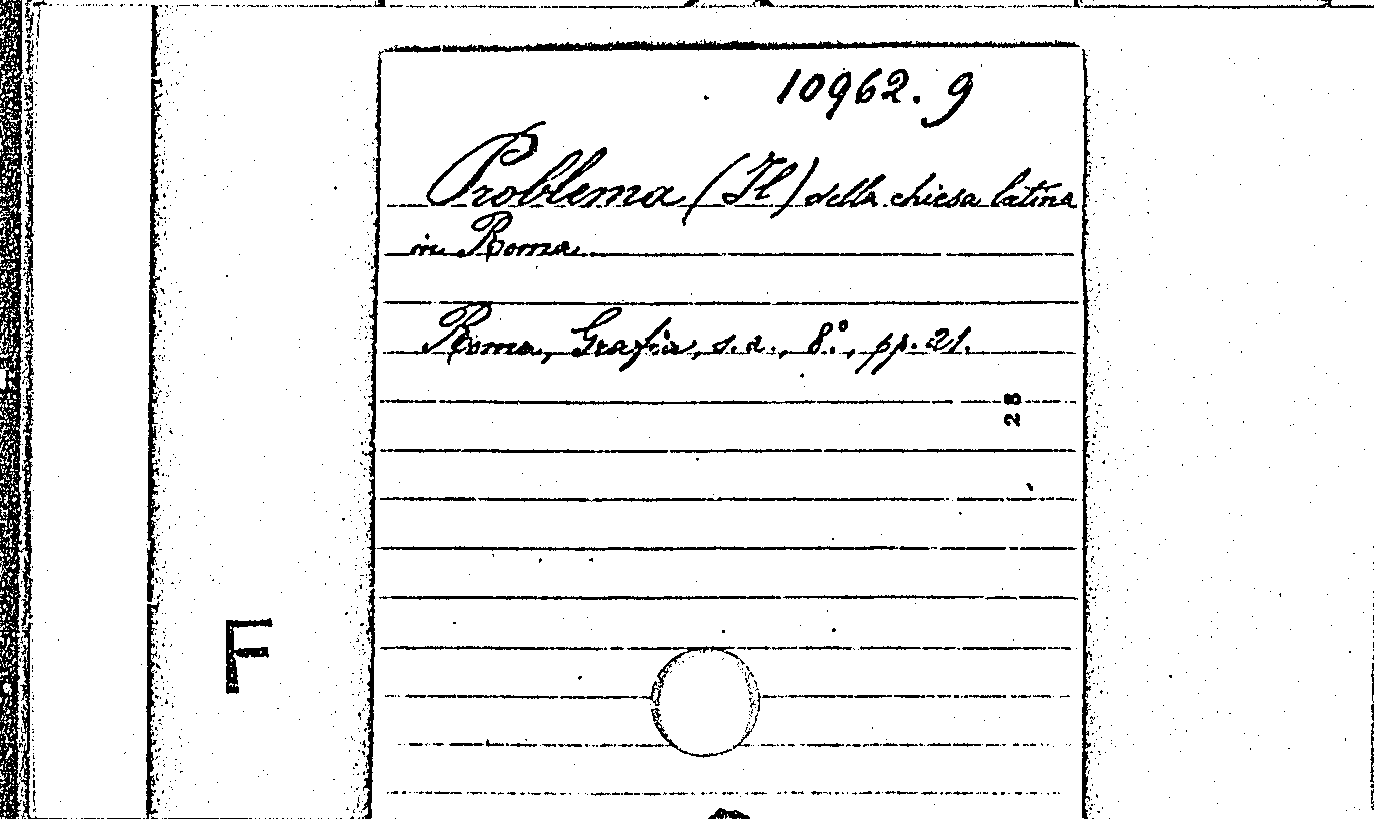 10962.9
Problema (Il) della chiesa latina
in Roma
Roma, Grafia, s.a., 8°, pp. 21.
28
F